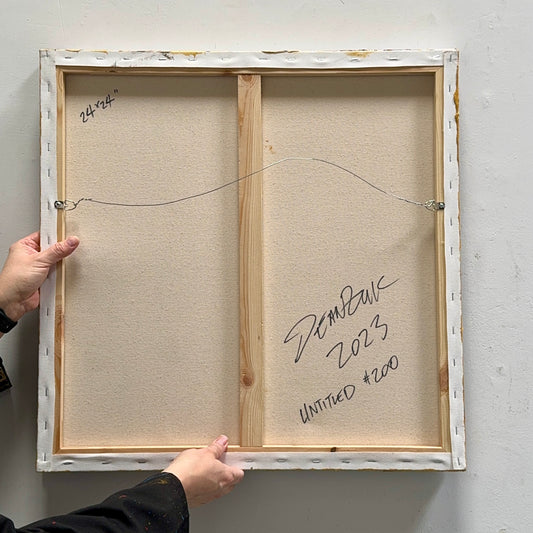 24"x24"
DEANZUK
2023
UNTITLED #200